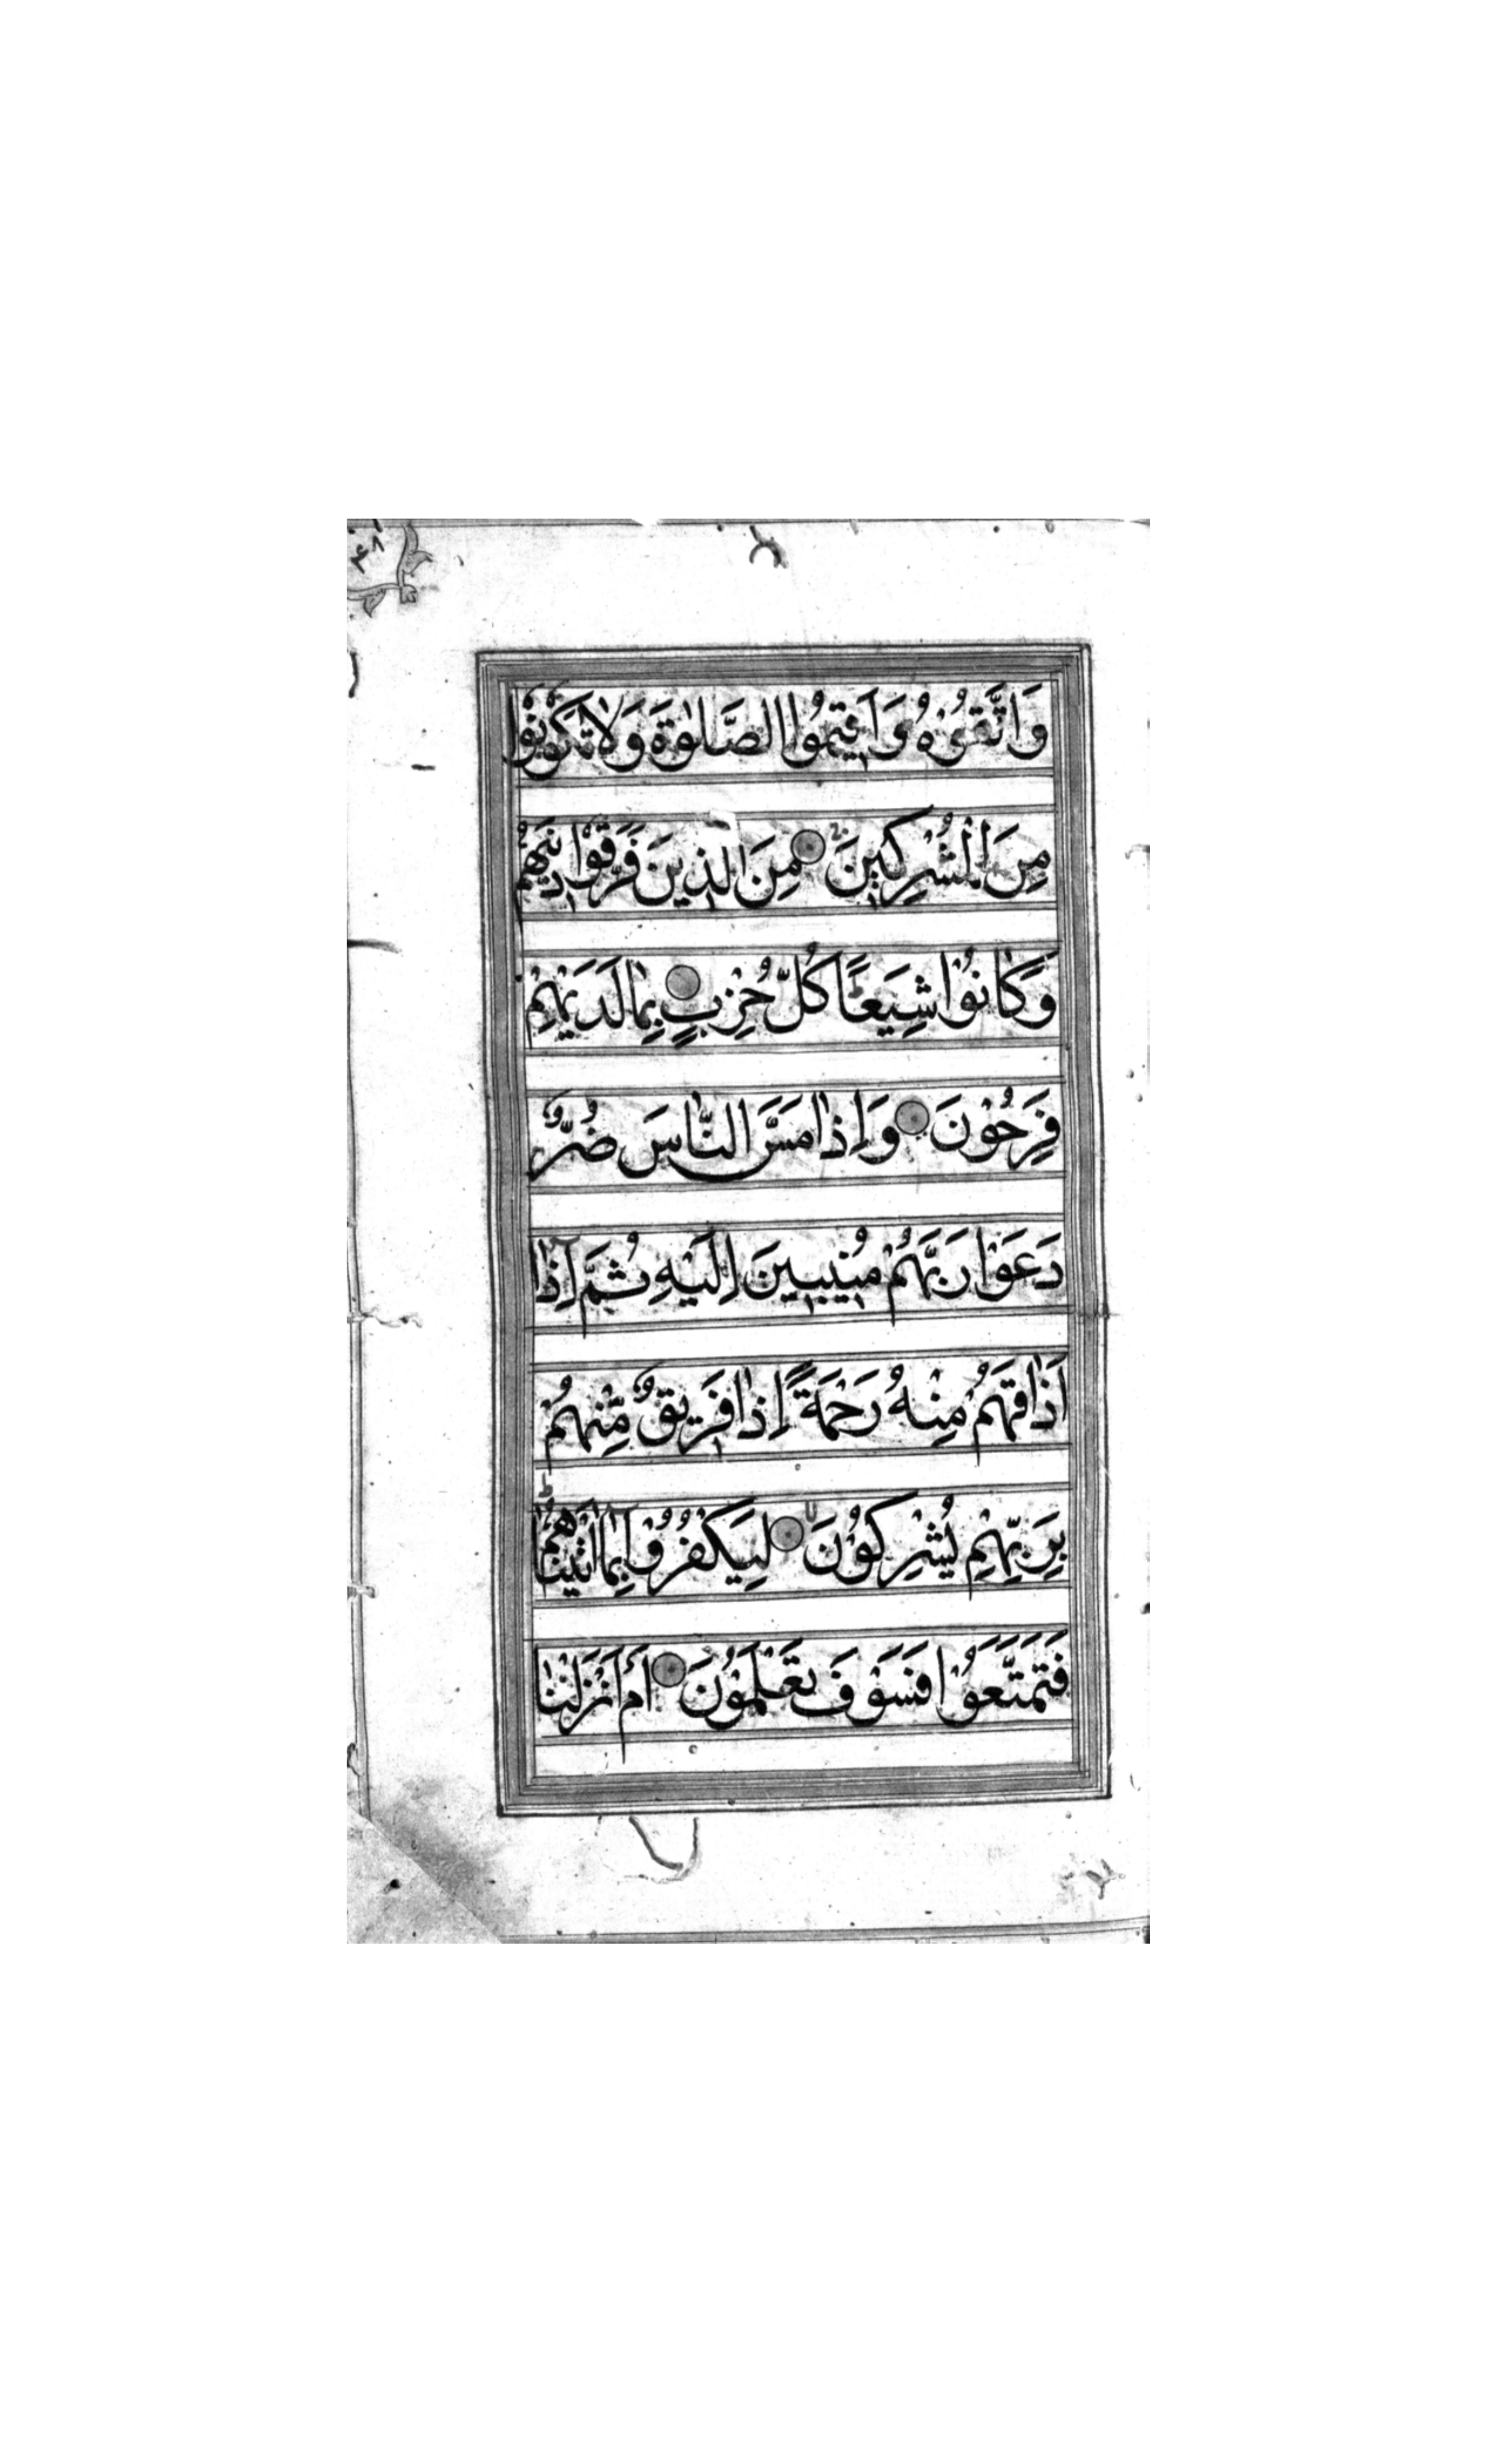 ۴۸
وَاتَّقُوْهُ وَاَقِيْمُوا الصَّلٰوةَ وَلَا تَكُوْنُوْا
مِنَ الْمُشْرِكِيْنَ مِنَ الَّذِيْنَ فَرَّقُوْا دِيْنَهُمْ
وَكَانُوْا شِيَعًا كُلُّ حِزْبٍ بِمَا لَدَيْهِمْ
فَرِحُوْنَ وَاِذَا مَسَّ النَّاسَ ضُرٌّ
دَعَوْا رَبَّهُمْ مُنِيْبِيْنَ اِلَيْهِ ثُمَّ اِذَا
اَذَاقَهُمْ مِنْهُ رَحْمَةً اِذَا فَرِيْقٌ مِّنْهُمْ
بِرَبِّهِمْ يُشْرِكُوْنَ لِيَكْفُرُوْا بِمَا اٰتَيْنَاهُمْ
فَتَمَتَّعُوْا فَسَوْفَ تَعْلَمُوْنَ اَمْ اَنْزَلْنَا